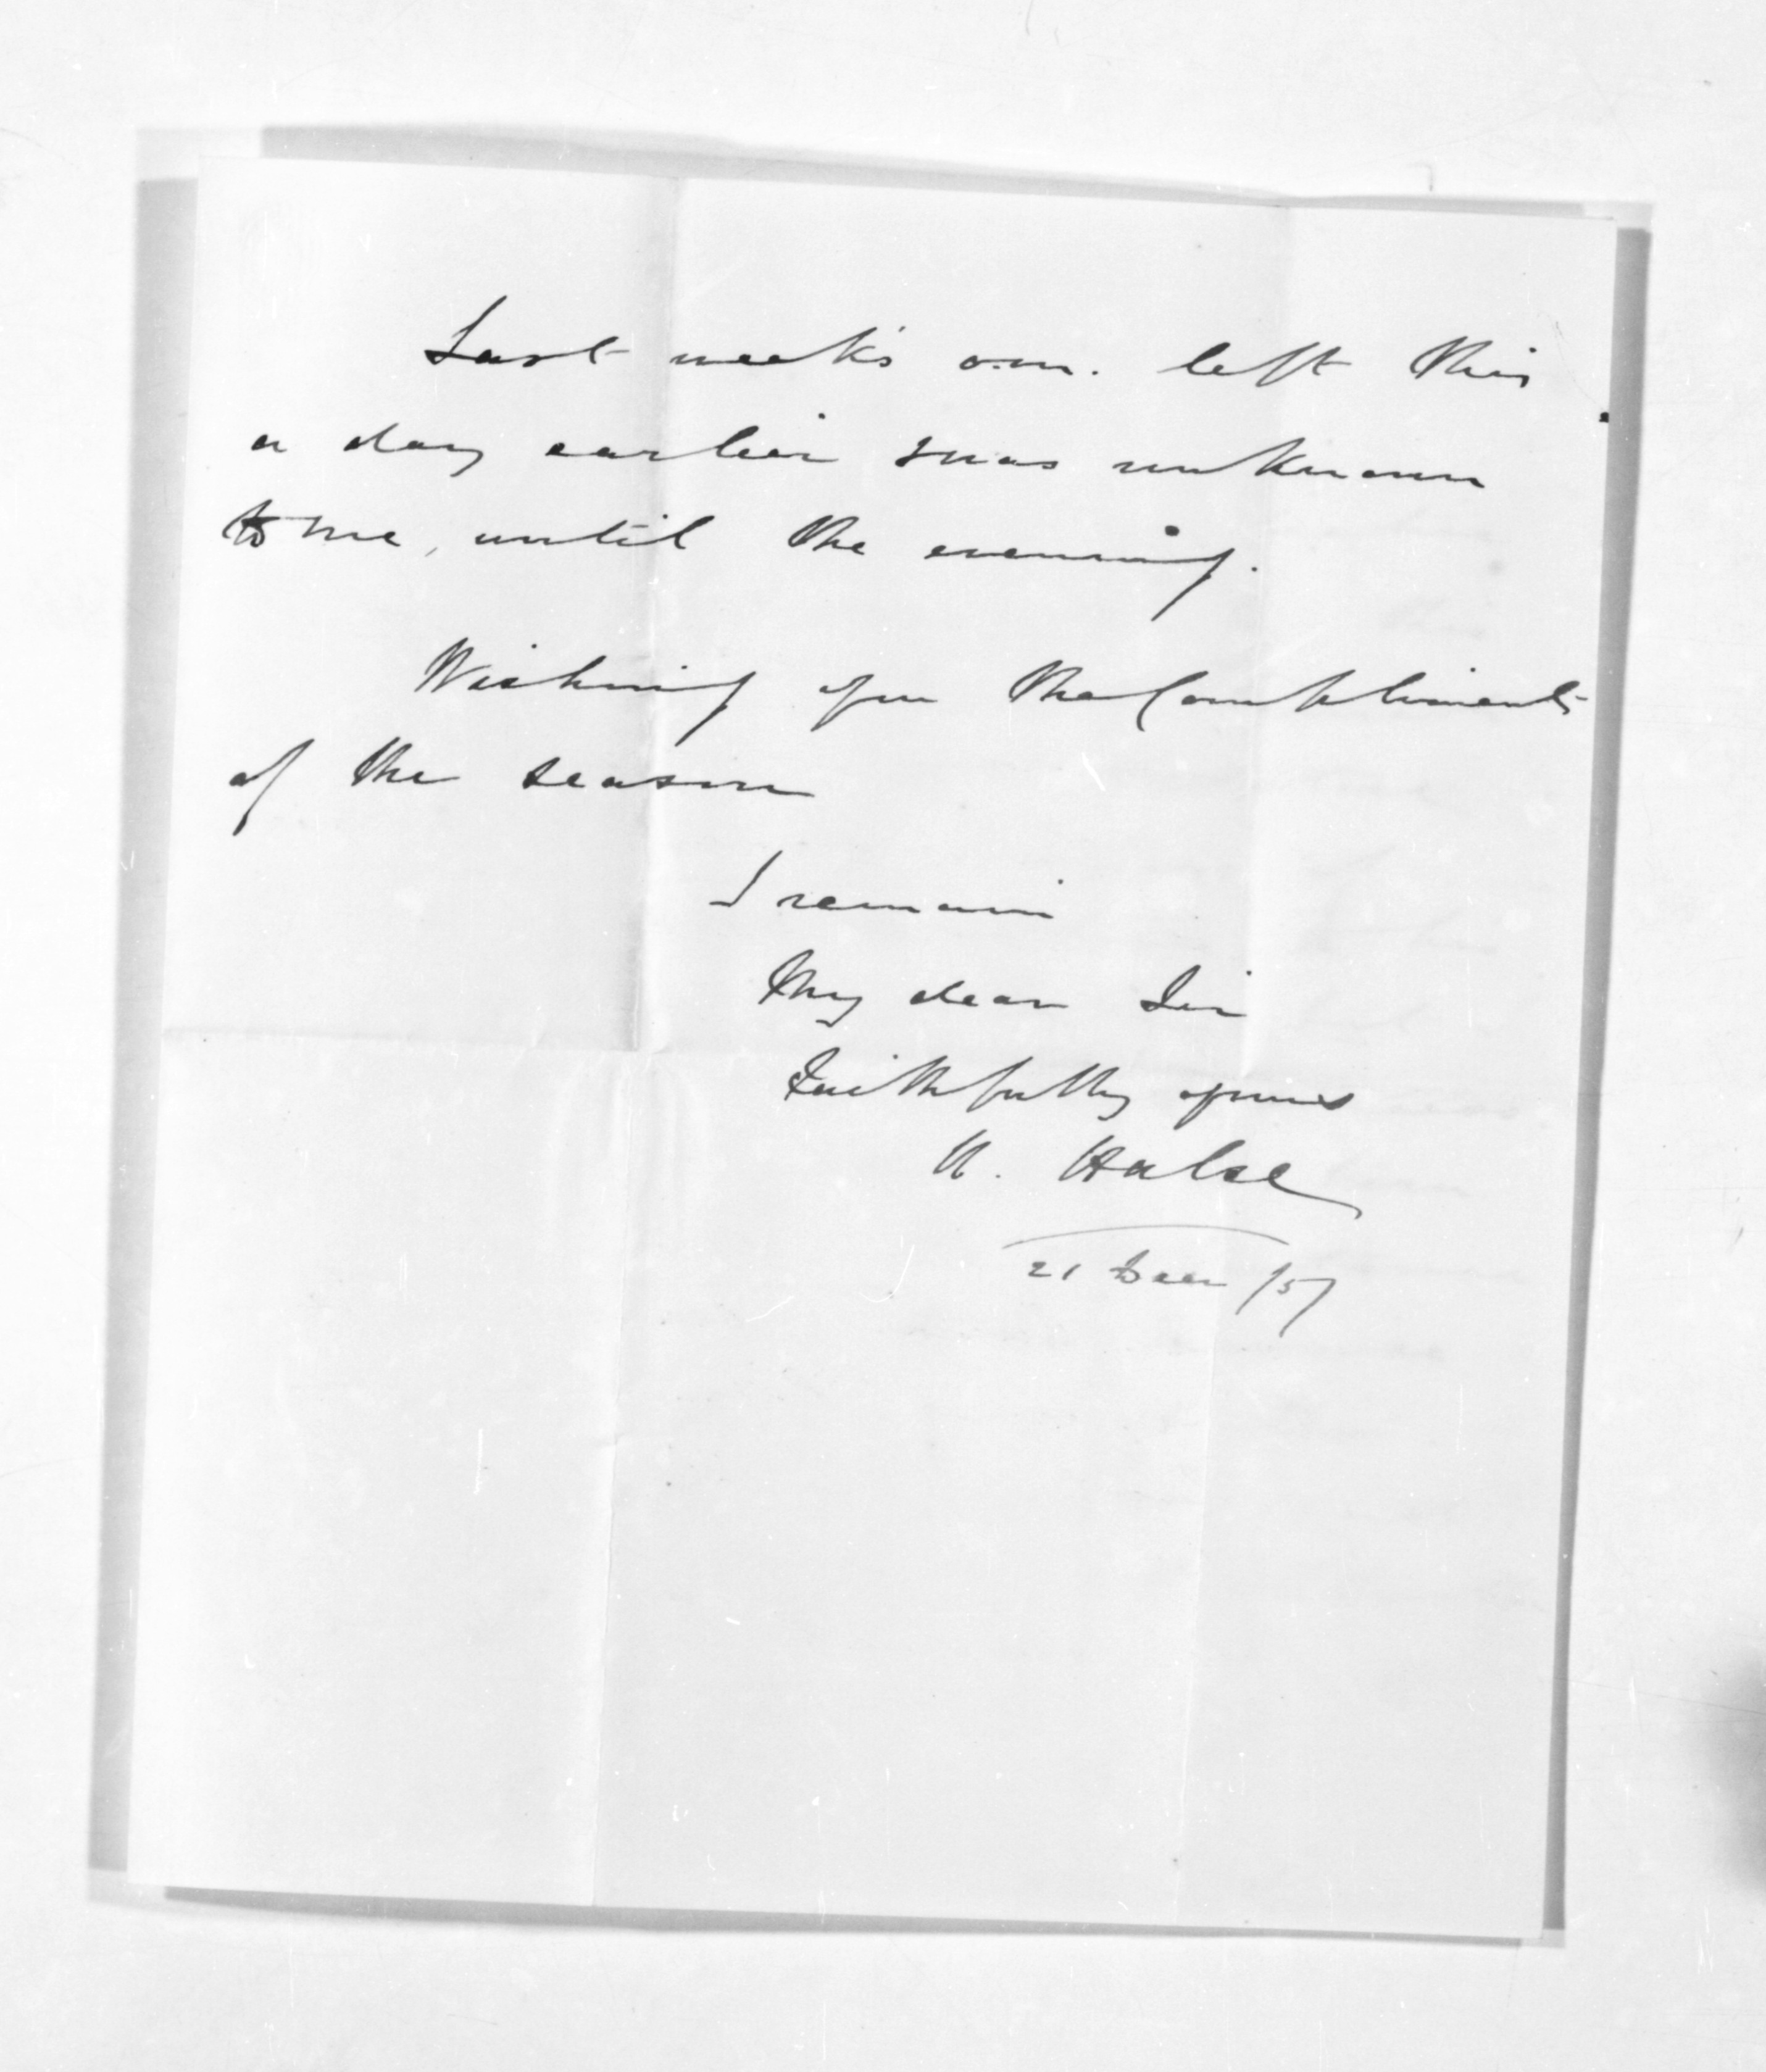 Last week's o.m. left this
a day earlier & was unknown
to me, until the evening.
Wishing you the Compliments
of the season
I remain
My dear Sir
Faithfully yours
H. Halse
21 Decr /57